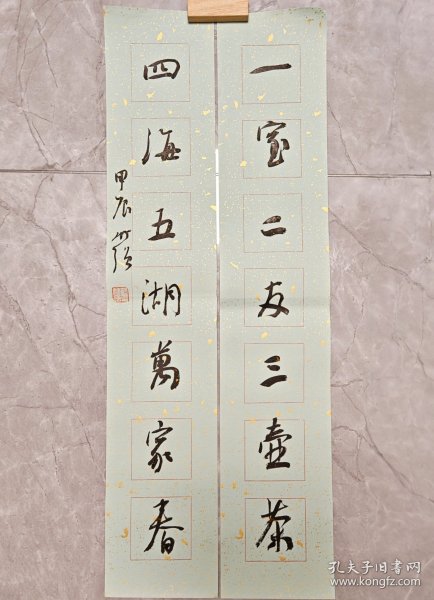 一室二友三壶茶
四海五湖萬家春
甲辰
孔夫子旧书网
www.kongfz.com